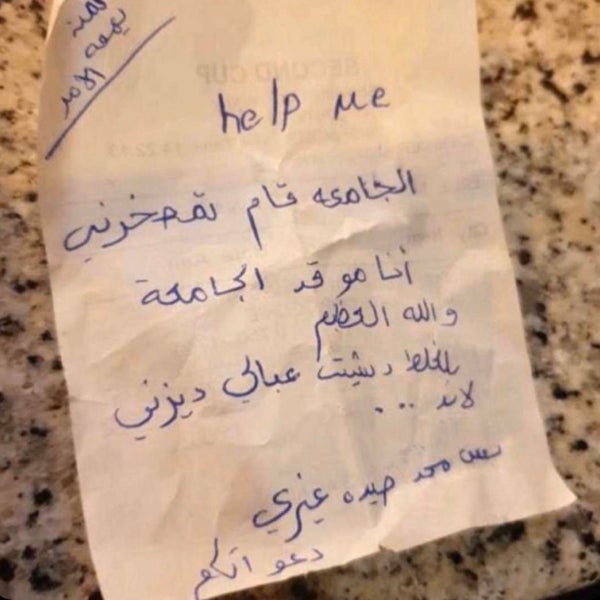 يهمه الامر
help me
الجامعه قام تمصخرني
أنا مو قد الجامعة
والله العظيم
بالغلط دشيت عبالي ديزني
لاند ...
بس محد صيده غيري
دعواتكم
SECOND CUP